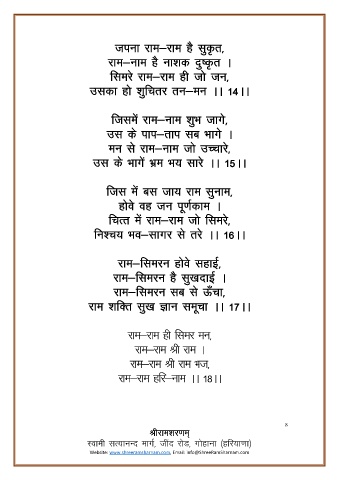 जपना राम–राम है सुकृत,
राम–नाम है नाशक दुष्कृत ।
सिमरे राम–राम ही जो जन,
उसका हो शुचितर तन–मन ।। 14।।
जिसमें राम–नाम शुभ जागे,
उस के पाप–ताप सब भागे ।
मन से राम–नाम जो उच्चारे,
उस के भागें भ्रम भय सारे ।। 15।।
जिस में बस जाय राम सुनाम,
होवे वह जन पूर्णकाम ।
चित्त में राम–राम जो सिमरे,
निश्चय भव–सागर से तरे ।। 16।।
राम–सिमरन होवे सहाई,
राम–सिमरन है सुखदाई ।
राम–सिमरन सब से ऊँचा,
राम शक्ति सुख ज्ञान समूचा ।। 17।।
राम–राम ही सिमर मन,
राम–राम श्री राम ।
राम–राम श्री राम भज,
राम–राम हरि–नाम ।। 18।।
8
श्रीरामशरणम्
स्वामी सत्यानन्द मार्ग, जींद रोड, गोहाना (हरियाणा)
Website: www.shreeramsharnam.com, Email: info@ShreeRamSharnam.com